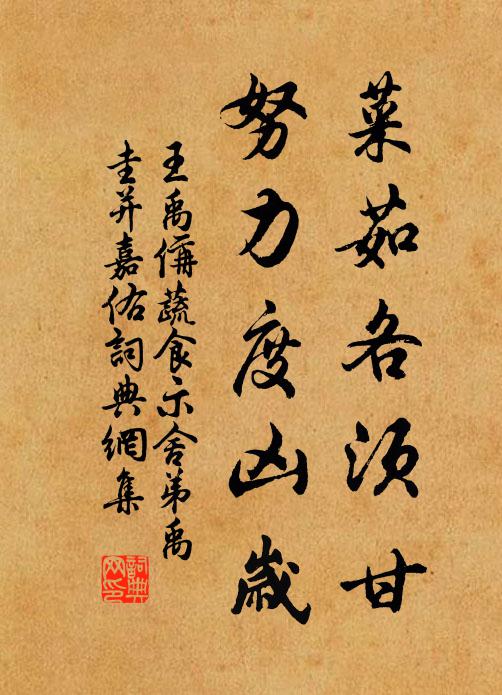 菜茹各須甘
努力度凶歲
王禹偁蔬食示舍弟禹
圭并嘉佑詞典網集
詞典
网印